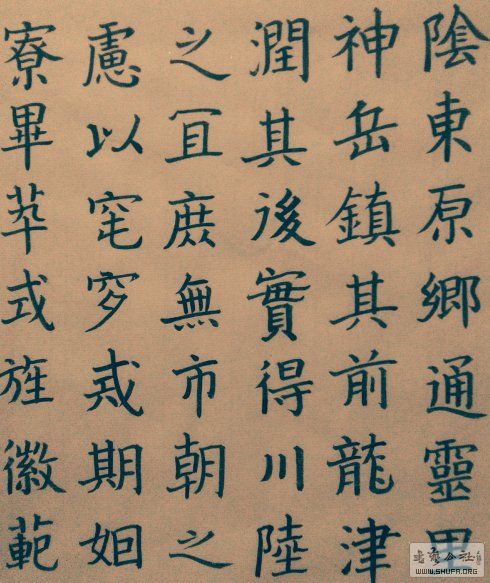 陰東原鄉通靈里
神岳鎮其前龍津
潤其後實得川陸
之冝庶無市朝之
慮以窀穸戒期姻
寮畢萃式旌徽範
WWW.SHUFA.ORG